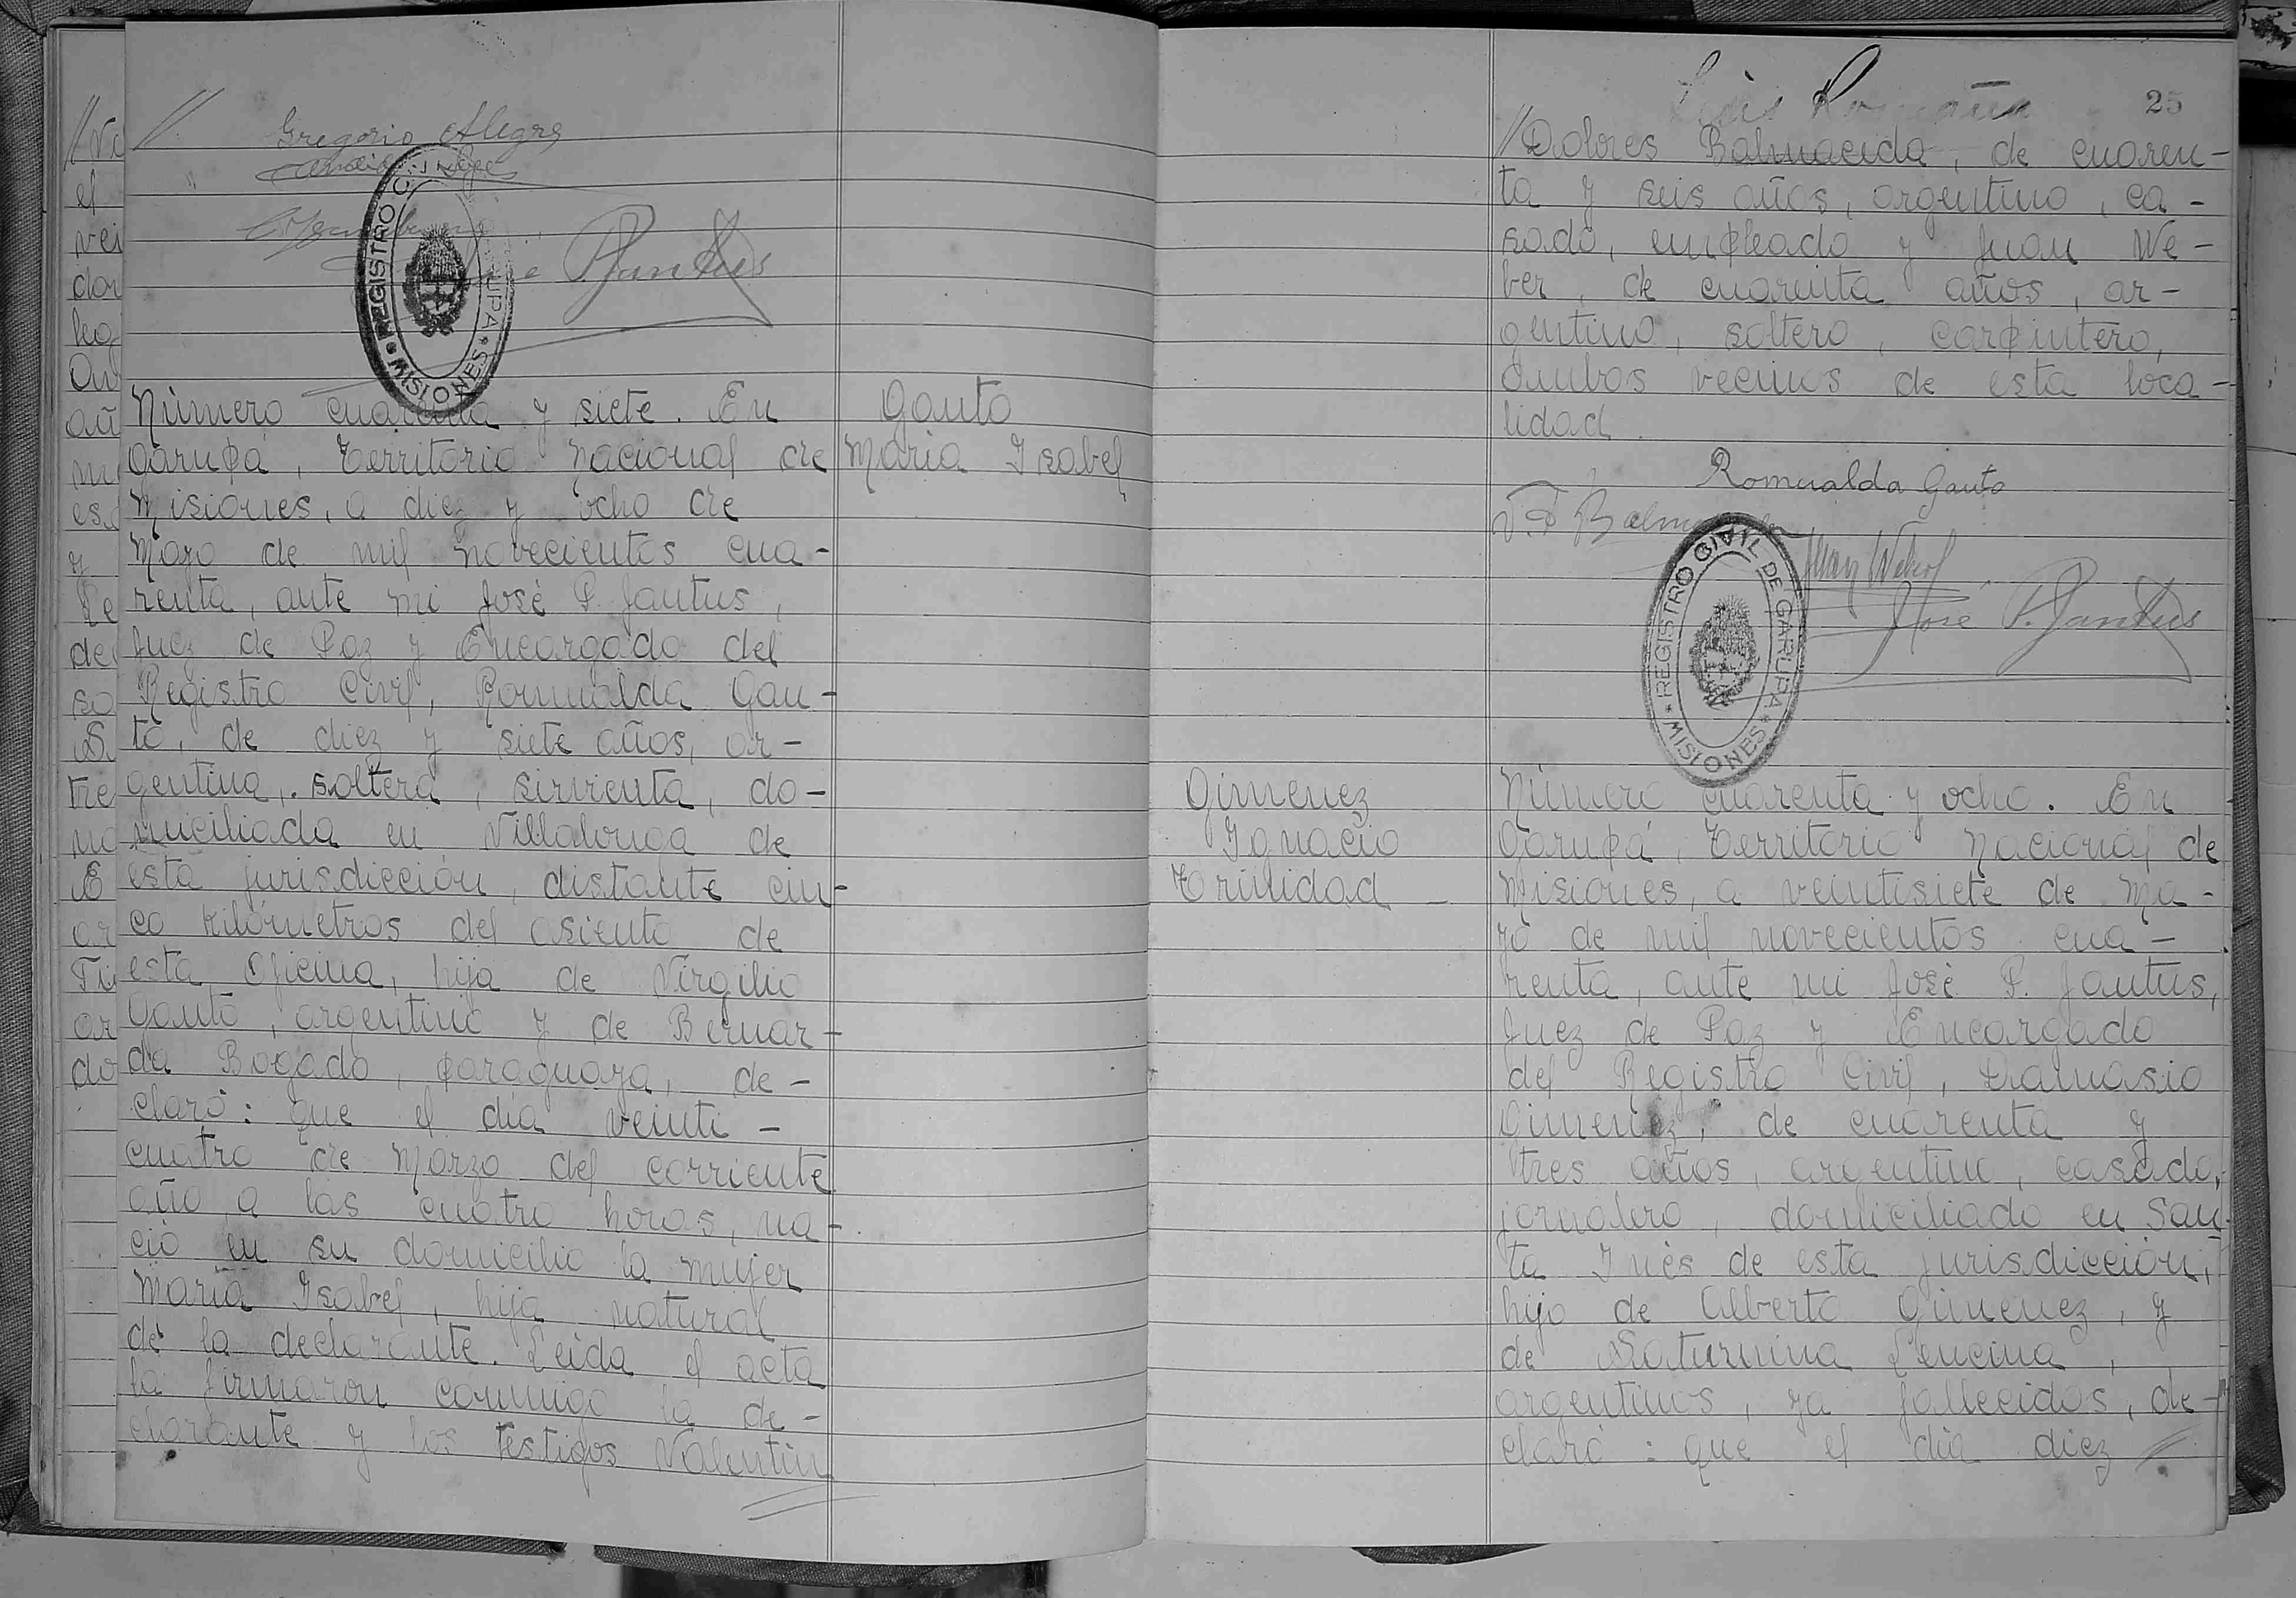 //
Gregorio Alegre
José P. Jantus
REGISTRO CIVIL DE GARUPA * MISIONES *
Número cuarenta y siete. En
Garupá, Territorio Nacional de
Misiones, a diez y ocho de
Mayo de mil novecientos cua-
renta, ante mi José P. Jantus,
Juez de Paz y Encargado del
Registro Civil, Romualda Gau-
to, de diez y siete años, ar-
gentina, soltera, sirvienta, do-
miciliada en Villalonga de
esta jurisdicción, distante cin-
co kilómetros del asiento de
esta Oficina, hija de Virgilio
Gauto, argentino y de Bernar-
da Bogado, paraguaya, de-
claró: que el día veinti-
cuatro de Marzo del corriente
año a las cuatro horas, na-
ció en su domicilio la mujer
María Isabel, hija natural
de la declarante. Leida el acta
la firmaron conmigo la de-
clarante y los testigos Valentín
//
Gauto
María Isabel
25
//Dolores Balmaceda, de cuaren-
ta y seis años, argentino, ca-
sado, empleado y Juan We-
ber, de cuarenta años, ar-
gentino, soltero, carpintero,
ambos vecinos de esta loca-
lidad.
Romualda Gauto
V. D. Balmaceda
Juan Weber
José P. Jantus
REGISTRO CIVIL DE GARUPA * MISIONES *
Gimenez
Ignacio
Trinidad
Número cuarenta y ocho. En
Garupá, Territorio Nacional de
Misiones, a veintisiete de Ma-
yo de mil novecientos cua-
renta, ante mi José P. Jantus,
Juez de Paz y Encargado
del Registro Civil, Damasio
Gimenez, de cuarenta y
tres años, argentino, casado,
jornalero, domiciliado en San-
ta Inés de esta jurisdicción,
hijo de Alberto Gimenez, y
de Saturnina Lencina,
argentinos, ya fallecidos, de-
claró: que el día diez //